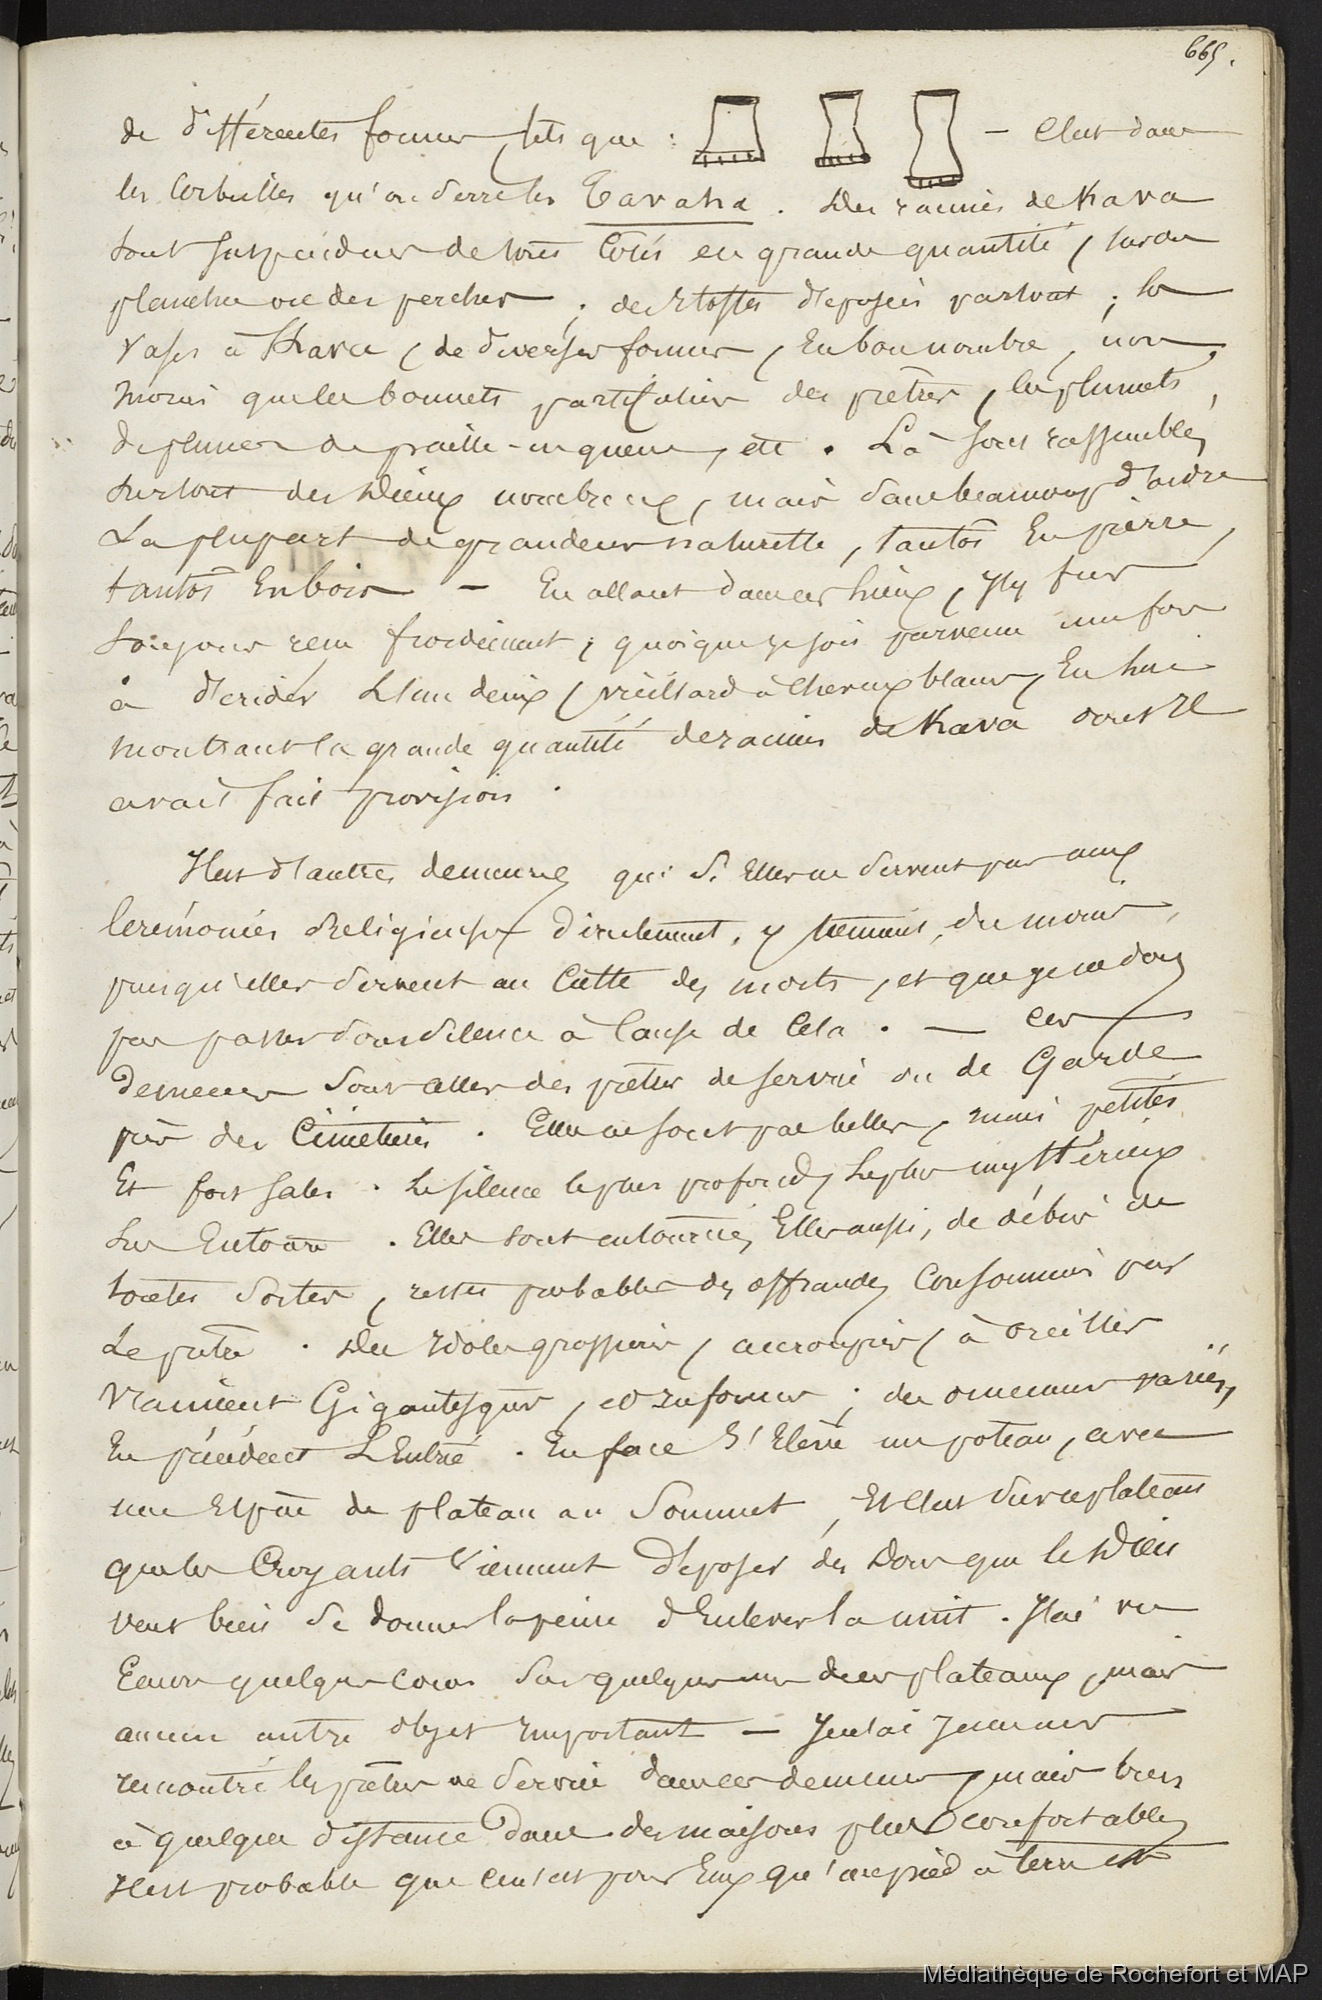 665.
de différentes formes, tels que : — C'est dans
les Corbeilles qu'on serre les Tavaha. Des racines de Kava
sont suspendues de tous Côtés en grande quantité, sur des
planches ou des perches ; des Etoffes déposées partout ; les
Vases à Kava, de diverses formes, En bon nombre, non
moins que les bonnets particuliers des prêtres, les plumets,
de plumes de paille-en-queue, etc. Là sont rassemblés
surtout des Dieux nombreux, mais sans beaucoup d'ordre
La plupart de grandeur naturelle, tantôt En pierre,
tantôt En bois — En allant dans ces lieux, j'y fus
toujours reçu froidement, quoique je sois parvenu une fois
à dérider l'un deux, vieillard à cheveux blancs, En lui
montrant la grande quantité de racines de Kava dont Il
avait fait provision.
Il est d'autres demeures qui Si Elles ne servent pas aux
Cérémonies Religieuses directement, y tiennent du moins,
puisqu'elles servent au Culte des morts, et que je ne dois
pas passer sous silence à Cause de Cela. — Ces
demeures sont celles des prêtres de service ou de Garde
près des Cimetières. Elles ne sont pas belles, mais petites
Et fort sales. Le silence le plus profond, le plus mystérieux
les Entoure. Elles sont entourées, Elles aussi, de débris de
toutes sortes, restes probables des offrandes Consommées par
Le prêtre. Des Idoles grossières, accroupies, à oreilles
vraiment Gigantesques, et Informes ; des ornements variés,
En précèdent L'Entrée. En face S'Elève un poteau, avec
une Espèce de plateau au Sommet, Et C'est sur ce plateau
que les Croyants Viennent déposer des Dons que le Dieu
veut bien se donner la peine d'Enlever la nuit. J'ai vu
Encore quelques cocos sur quelques uns de ces plateaux, mais
aucun autre objet Important — Je n'ai jamais
rencontré les prêtres de Service dans ces demeures, mais bien
à quelque distance dans des maisons plus confortables
Il est probable que ce n'est pour Eux qu'un pied à terre et
Médiathèque de Rochefort et MAP